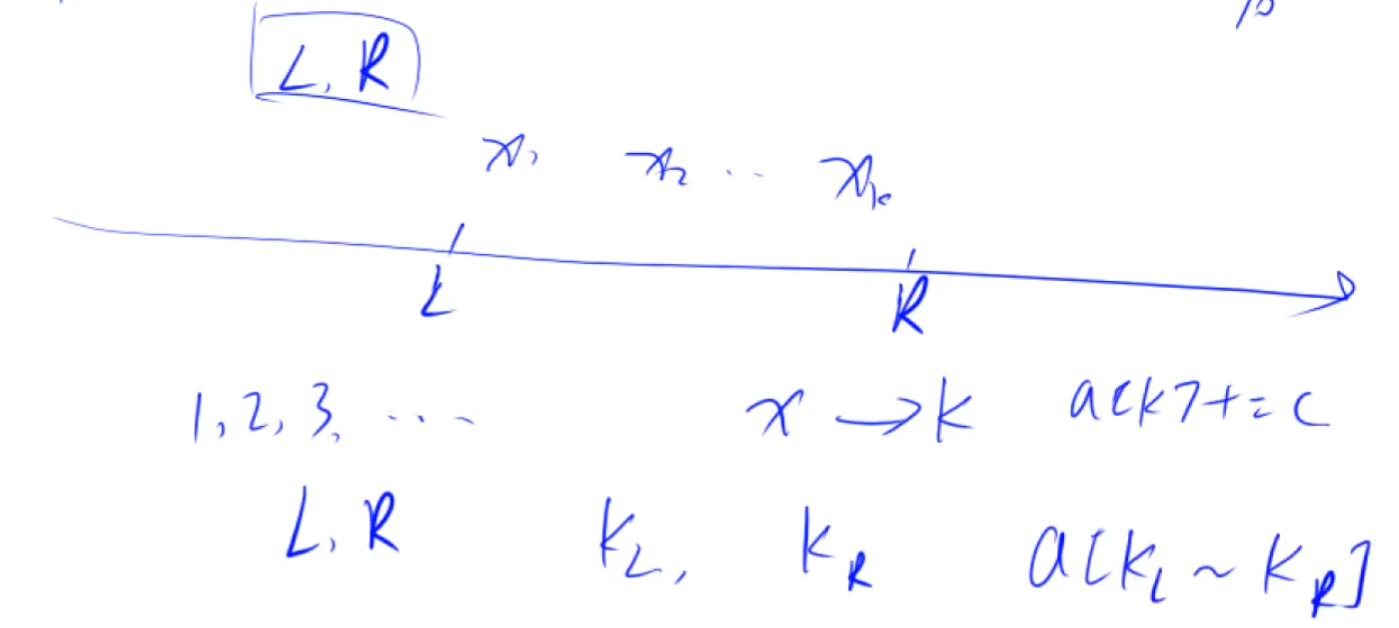 L, R
x₁ x₂ ‥ xₖ
L R
1, 2, 3, ...
x → k a[k] += c
L, R k_L, k_R a[k_L ~ k_R]